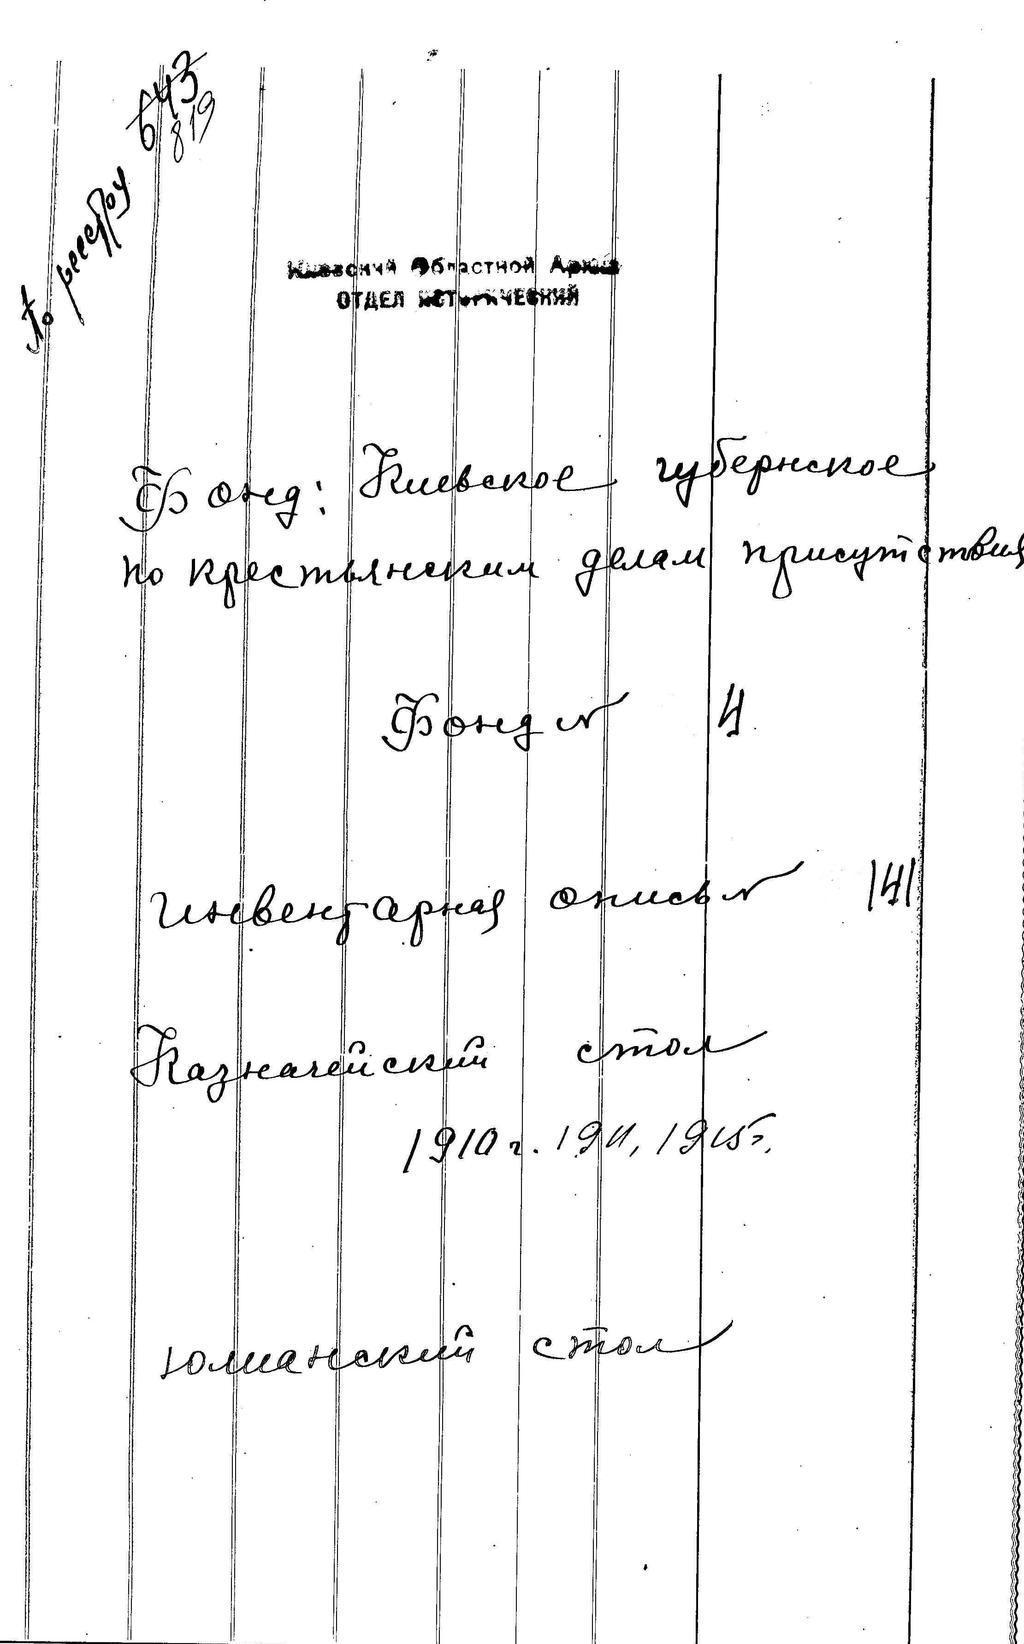 По реестру 643
819
Киевский Областной Архив
ОТДЕЛ ИСТОРИЧЕСКИЙ
Фонд: Киевское губернское
по крестьянским делам присутствия
Фонд № 4
инвентарная опись № 141
Казначейский стол
1910 г. 1911, 1915 г.
юманский стол